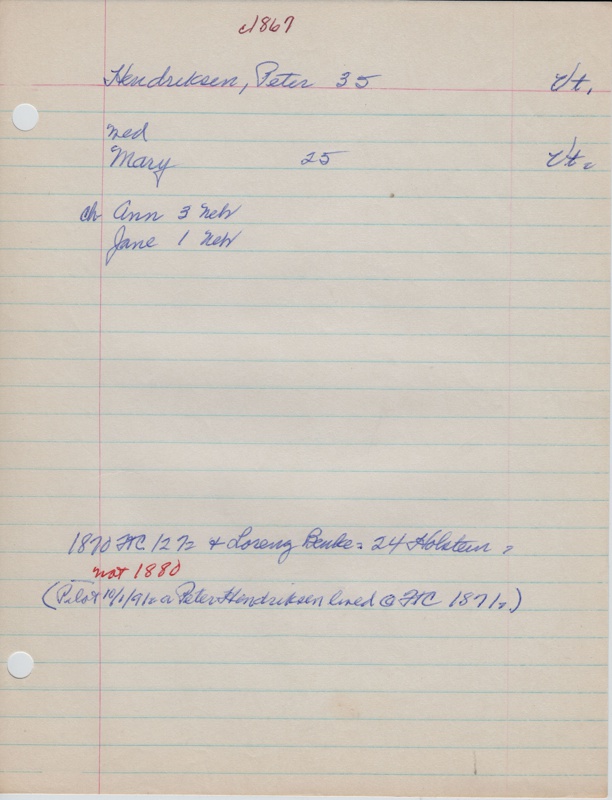 c1867
Hendriksen, Peter 35 Vt.
med
Mary 25 Vt.
ch Ann 3 Neb
Jane 1 Neb
1870 FtC 12/2 + Lorenz Benke = 24 Holstein
not 1880
(Pilot a Peter Hendriksen lived @ FtC 1871/2)